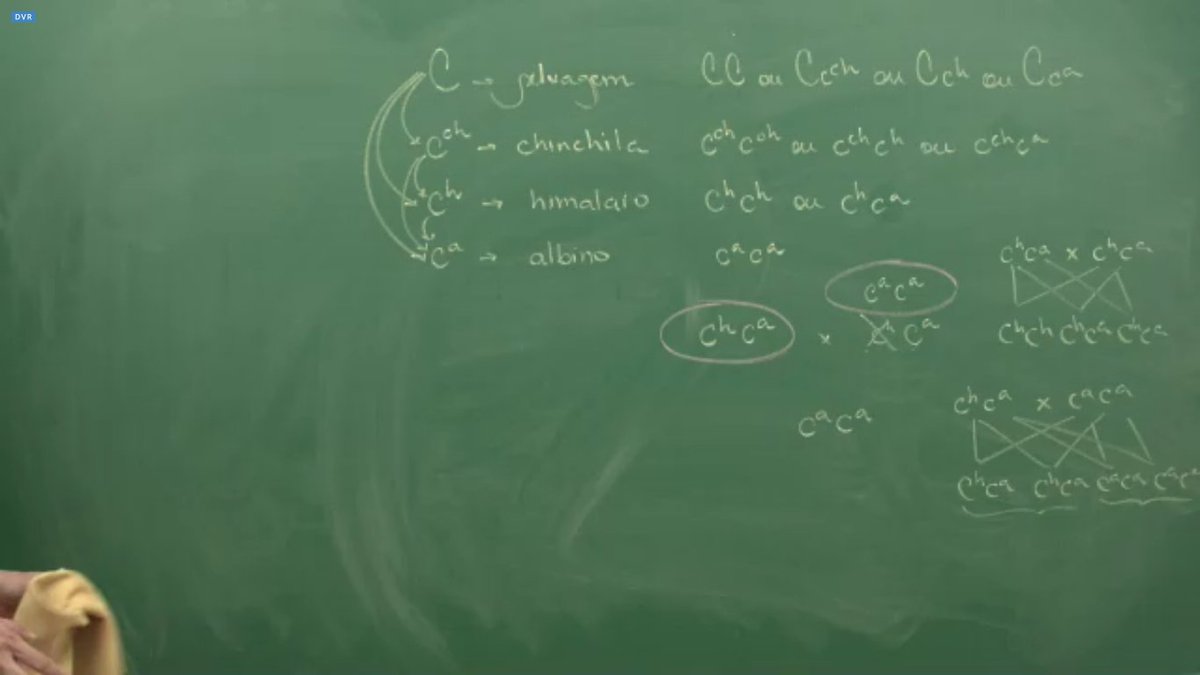 DVR
C → selvagem CC ou Cc^ch ou Cc^h ou Cc^a
c^ch → chinchila c^ch c^ch ou c^ch c^h ou c^ch c^a
c^h → himalaio c^h c^h ou c^h c^a
c^a → albino c^a c^a
c^h c^a x c^h c^a
c^a c^a
c^h c^a x c^h c^a
c^h c^h c^h c^a c^h c^a
c^h c^a x c^a c^a
c^a c^a
c^h c^a c^h c^a c^a c^a c^a c^a